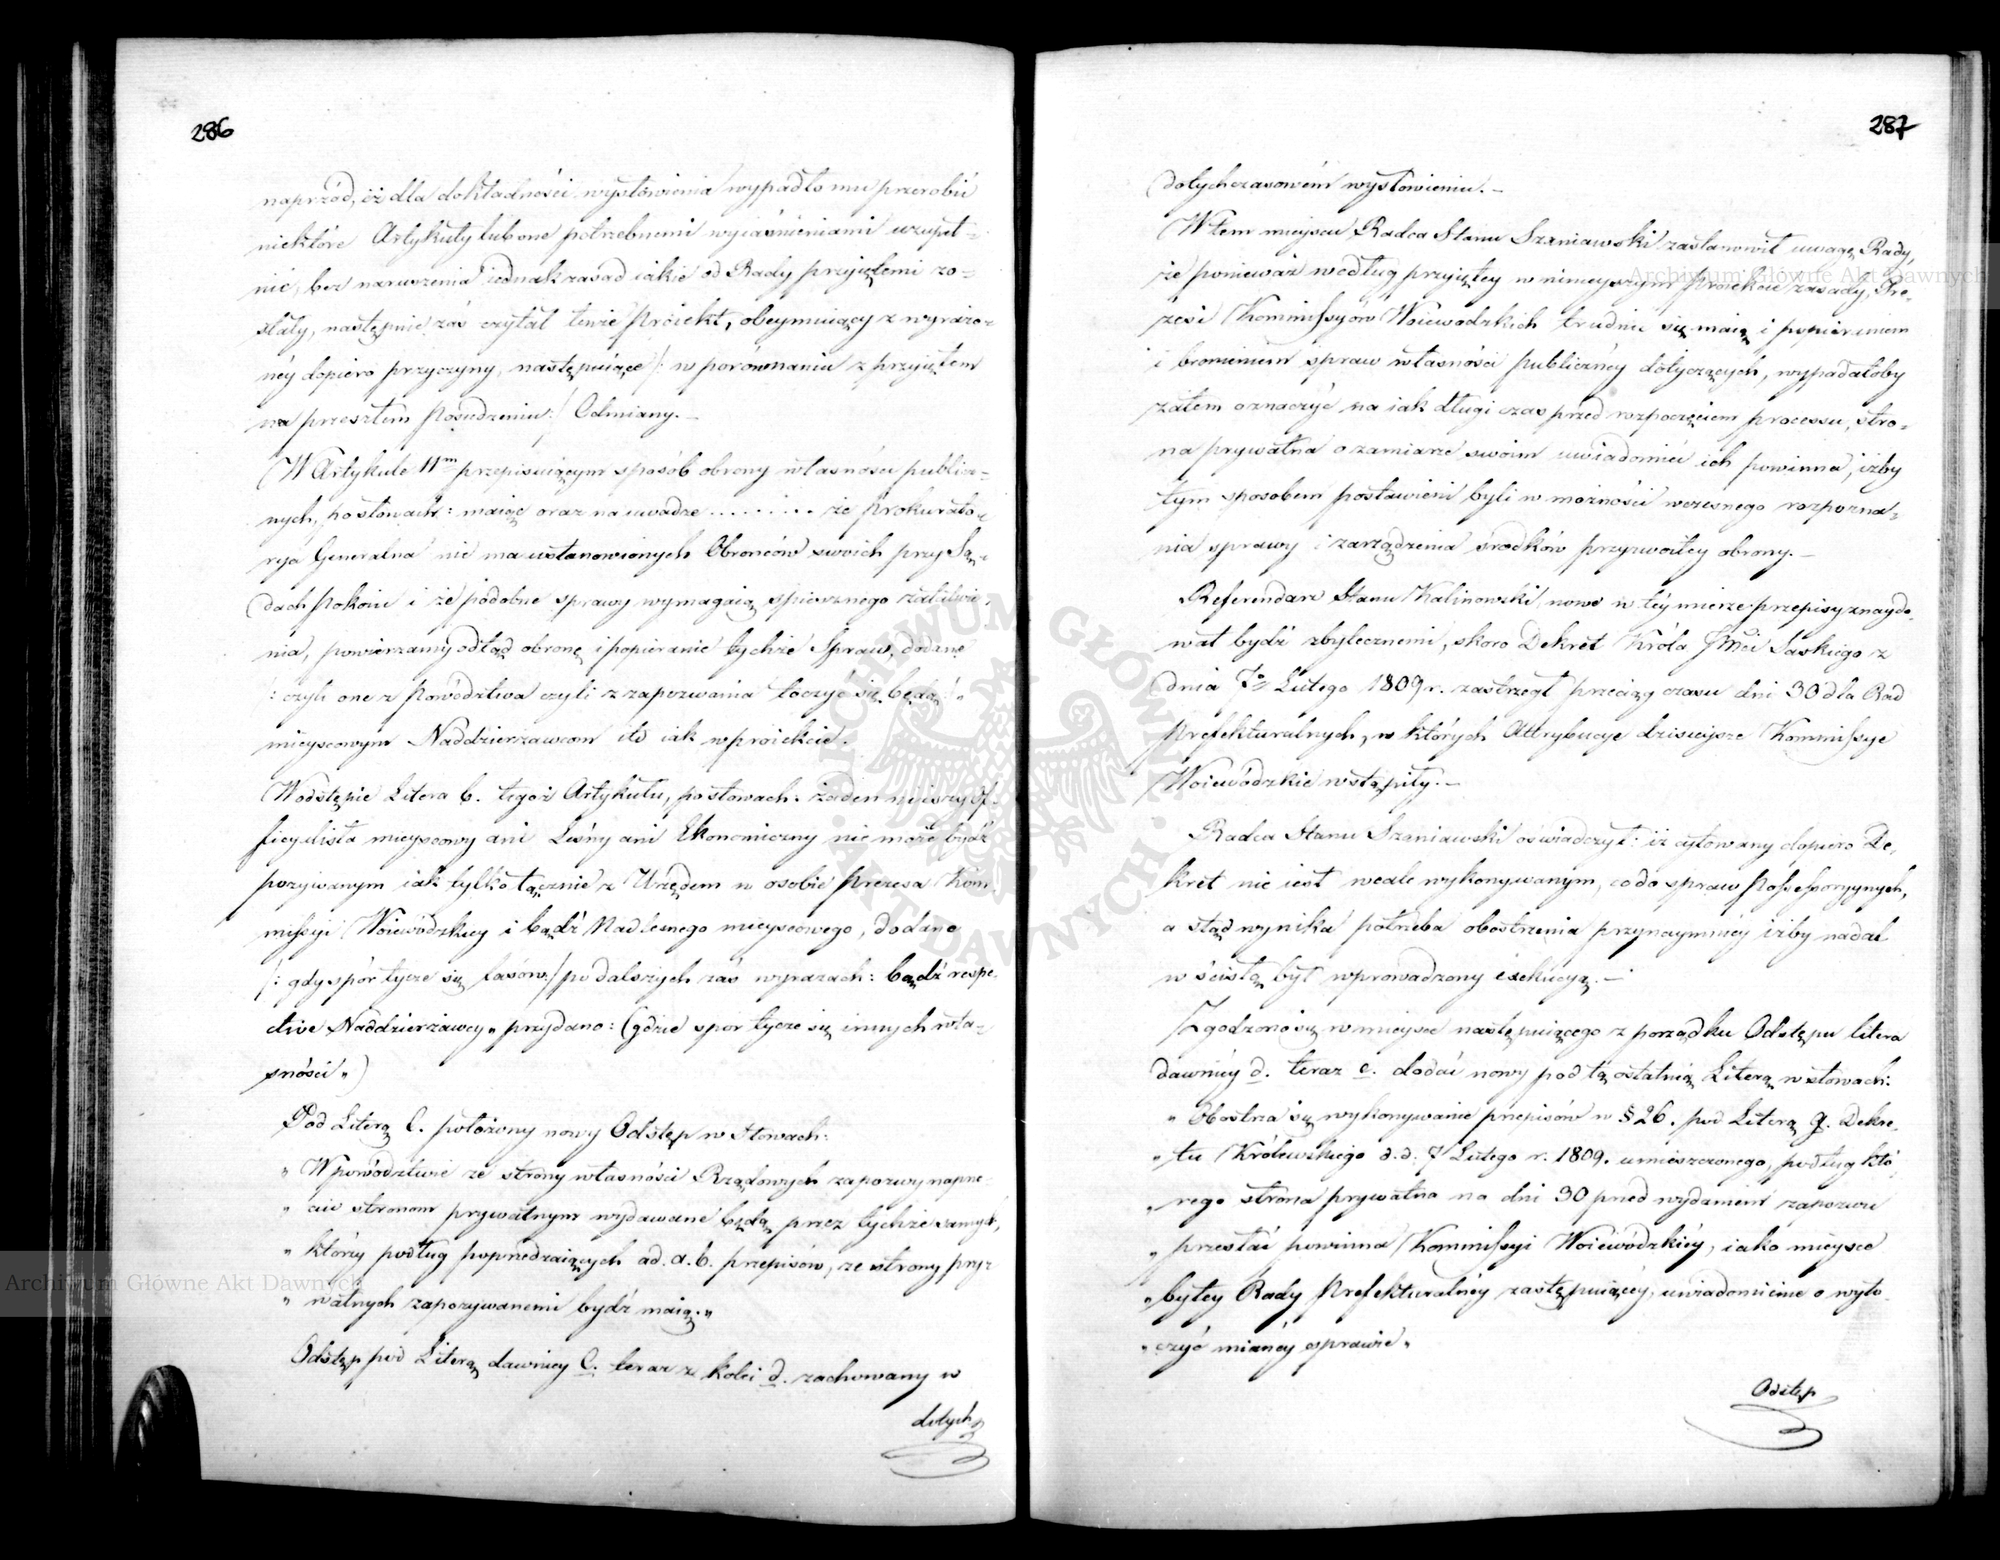 286
naprzód, iż dla dokładności wysłowienia wypadło mu przerobić
niektóre Artykuły lub one potrzebnemi wyiaśnieniami uzupeł=
nić, bez naruszenia iednak zasad iakie od Rady przyjętemi zo=
stały, następnie zaś czytał tenże Proiekt, obeymuiący z wyrażo=
néy dopiero przyczyny, następuiące /: w porównaniu z przyjętem
na przeszłem Posiedzeniu :/ Odmiany. —
W Artykule 11m przepisuiącym sposób obrony własności publicz=
nych, po słowach: maiąc oraz na uwadze ......... że Prokurato=
rya Generalna nie ma ustanowionych Obrońców swoich przy Są=
dach Pokoiu i że podobne sprawy wymagaią spiesznego załatwie=
nia, powierzamy odtąd obronę i popieranie tychże Spraw, dodane
/: czyli one z Powództwa czyli z zapozwania toczyć się będą :/ „
mieyscowym Naddzierżawcom itd iak w proiekcie.
W odstępie Litera b. tegoż Artykułu, po słowach: żaden niższy Of=
ficyalista mieyscowy ani Leśny ani Ekonomiczny nie może bydź
pozywanym iak tylko łącznie z Urzędem w osobie Prezesa Kom=
missyi Woiewódzkiey i bądź Nadleśnego mieyscowego, dodano
/: gdy spór tycze się lasów :/ po dalszych zaś wyrazach: bądź respe=
ctive Naddzierżawcy „ przydano: (gdzie spor tycze się innych wła=
sności „)
Pod Literą C. położony nowy Odstęp w Słowach:
„ W powództwie ze strony własności Rządowych zapozwy naprze=
„ ciw stronom prywatnym wydawane będą przez tychże samych,
„ którzy podług poprzedzaiących ad. a. b. przepisów, ze strony pry=
„ watnych zapozywanemi bydź maią. „
Odstęp pod Literą dawniey C. teraz z kolei d. zachowany w
dotych
287
dotychczasowém wysłowieniu. —
W tem mieyscu Radca Stanu Szaniawski zastanowił uwagę Rady,
że ponieważ według przyjętey w ninieyszym Proiekcie zasady, Pre=
zesi Kommissyów Woiewodzkich trudnić się maią i popieraniem
i bronieniem spraw własności publiczney dotyczących, wypadałoby
zatem oznaczyć na iak długi czas przed rozpoczęciem processu, stro=
na prywatna o zamiarze swoim uwiadomić ich powinna, iżby
tym sposobem postawieni byli w możności wczesnego rozpozna=
nia sprawy i zarządzenia środków przyzwoitey obrony. —
Referendarz Stanu Kalinowski nowe w téy mierze przepisy znaydo=
wał bydź zbytecznemi, skoro Dekret Króla JMci Saskiego z
dnia 7o Lutego 1809 r. zastrzegł przeciąg czasu dni 30 dla Rad
Prefekturalnych, w których Attrybucye dzisieysze Kommissye
Woiewódzkie wstąpiły. —
Radca Stanu Szaniawski oświadczył: iż cytowany dopiero De=
kret nie iest wcale wykonywanym, co do spraw Possessoryynych,
a stąd wynika potrzeba obostrzenia przynaymniéy iżby nadal
w ścisłą był wprowadzony exekucyą. —
Zgodzono się w mieysce następuiącego z porządku Odstępu litera
dawniéy d. teraz e. dodać nowy pod tą ostatnią Literą w słowach:
„ Obostrza się wykonywanie przepisów w § 26. pod Literą g. Dekre=
„ tu Królewskiego d.d. 7 Lutego r. 1809. umieszczonego, podług któ=
„ rego strona prywatna na dni 30 przed wydaniem zapozwu
„ przesłać powinna Kommissyi Woiewódzkiéy, iako mieysce
„ byłey Rady Prefekturalnéy zastępuiącéy, uwiadomienie o wyto=
„ czyć mianéy sprawie „
Odstęp
Archiwum Główne Akt Dawnych
Archiwum Główne Akt Dawnych
ARCHIWUM GŁÓWNE AKT DAWNYCH